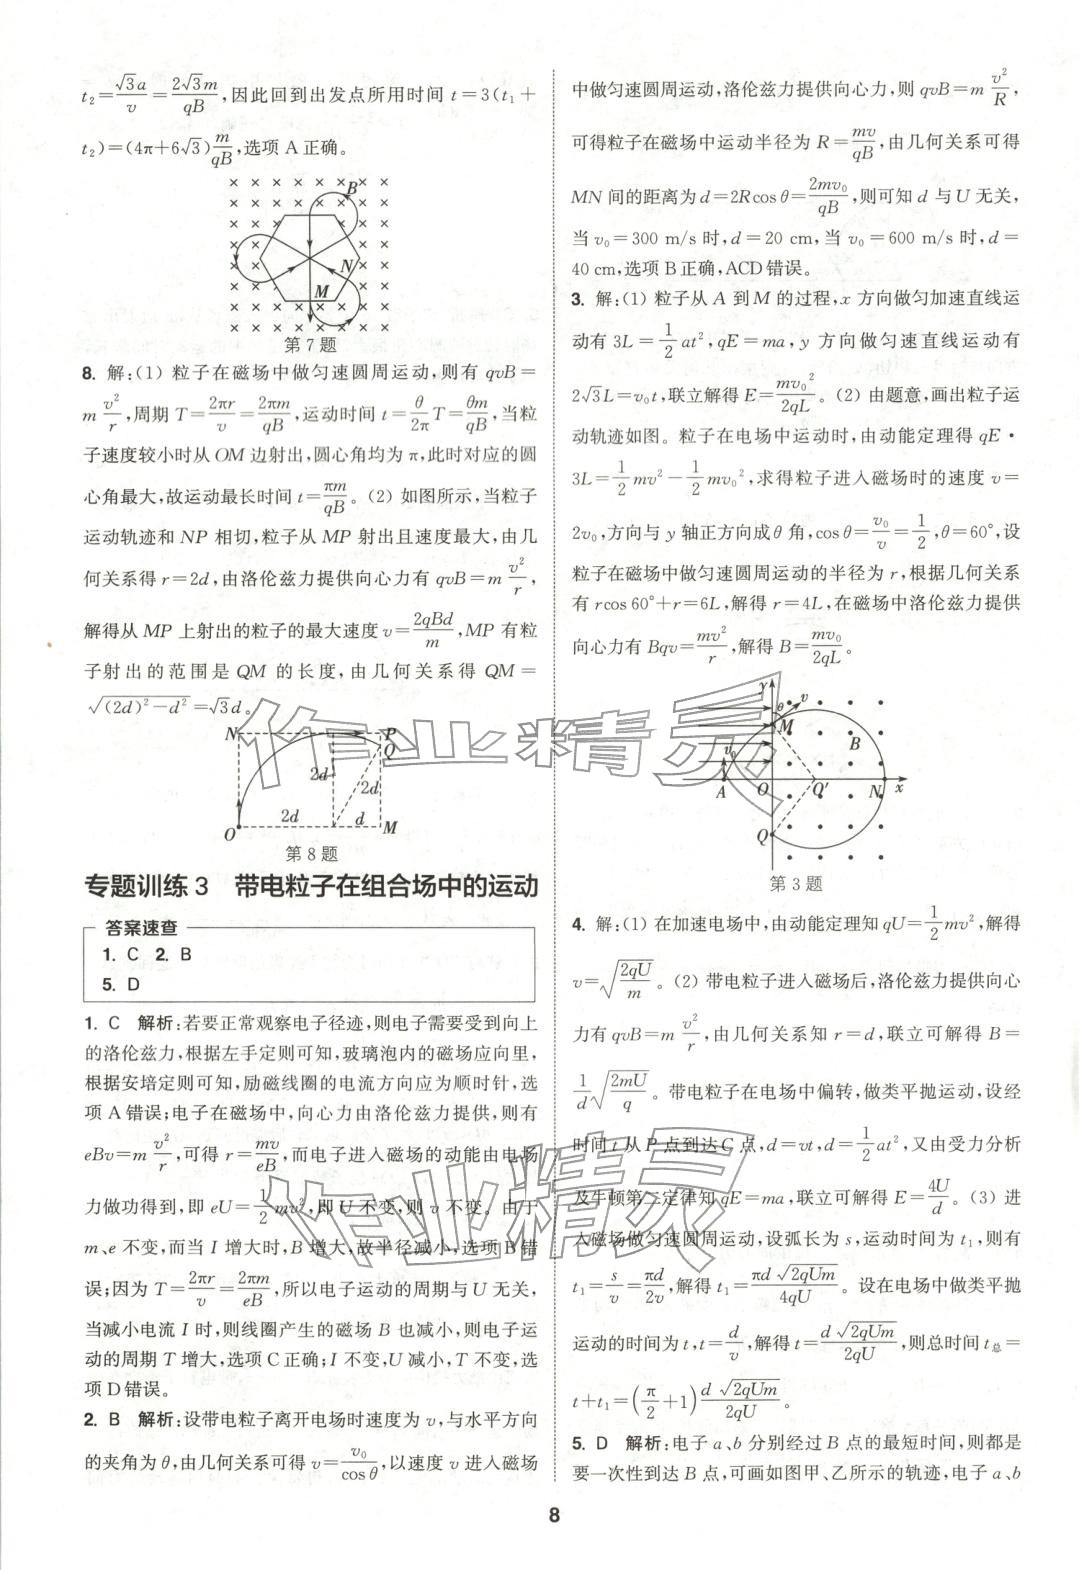 t₂=√3a/v=2√3m/qB,因此回到出发点所用时间 t=3(t₁+
t₂)=(4π+6√3)m/qB,选项 A 正确。
B
N
M
第 7 题
8. 解:(1) 粒子在磁场中做匀速圆周运动,则有 qvB=
m v²/r,周期 T=2πr/v=2πm/qB,运动时间 t=θ/2π T=θm/qB,当粒
子速度较小时从 OM 边射出,圆心角均为 π,此时对应的圆
心角最大,故运动最长时间 t=πm/qB。(2) 如图所示,当粒子
运动轨迹和 NP 相切,粒子从 MP 射出且速度最大,由几
何关系得 r=2d,由洛伦兹力提供向心力有 qvB=m v²/r,
解得从 MP 上射出的粒子的最大速度 v=2qBd/m,MP 有粒
子射出的范围是 QM 的长度,由几何关系得 QM=
√((2d)²-d²)=√3d。
N P
Q
2d 2d
2d d M
O
第 8 题
专题训练 3 带电粒子在组合场中的运动
答案速查
1. C 2. B
5. D
1. C 解析:若要正常观察电子径迹,则电子需要受到向上
的洛伦兹力,根据左手定则可知,玻璃泡内的磁场应向里,
根据安培定则可知,励磁线圈的电流方向应为顺时针,选
项 A 错误;电子在磁场中,向心力由洛伦兹力提供,则有
eBv=m v²/r,可得 r=mv/eB,而电子进入磁场的动能由电场
力做功得到,即 eU=1/2 mv²,即 U 不变,则 v 不变。由于
m、e 不变,而当 I 增大时,B 增大,故半径减小,选项 B 错
误;因为 T=2πr/v=2πm/eB,所以电子运动的周期与 U 无关,
当减小电流 I 时,则线圈产生的磁场 B 也减小,则电子运
动的周期 T 增大,选项 C 正确;I 不变,U 减小,T 不变,选
项 D 错误。
2. B 解析:设带电粒子离开电场时速度为 v,与水平方向
的夹角为 θ,由几何关系可得 v=v₀/cos θ,以速度 v 进入磁场
中做匀速圆周运动,洛伦兹力提供向心力,则 qvB=m v²/R,
可得粒子在磁场中运动半径为 R=mv/qB,由几何关系可得
MN 间的距离为 d=2Rcos θ=2mv₀/qB,则可知 d 与 U 无关,
当 v₀=300 m/s 时,d=20 cm,当 v₀=600 m/s 时,d=
40 cm,选项 B 正确,ACD 错误。
3. 解:(1) 粒子从 A 到 M 的过程,x 方向做匀加速直线运
动有 3L=1/2 at²,qE=ma,y 方向做匀速直线运动有
2√3L=v₀t,联立解得 E=mv₀²/2qL。(2) 由题意,画出粒子运
动轨迹如图。粒子在电场中运动时,由动能定理得 qE·
3L=1/2 mv²-1/2 mv₀²,求得粒子进入磁场时的速度 v=
2v₀,方向与 y 轴正方向成 θ 角,cos θ=v₀/v=1/2,θ=60°,设
粒子在磁场中做匀速圆周运动的半径为 r,根据几何关系
有 rcos 60°+r=6L,解得 r=4L,在磁场中洛伦兹力提供
向心力有 Bqv=mv²/r,解得 B=mv₀/2qL。
y θ v
M
B
v₀
A O Q′ N x
Q
第 3 题
4. 解:(1) 在加速电场中,由动能定理知 qU=1/2 mv²,解得
v=√(2qU/m)。(2) 带电粒子进入磁场后,洛伦兹力提供向心
力有 qvB=m v²/r,由几何关系知 r=d,联立可解得 B=
1/d √(2mU/q)。带电粒子在电场中偏转,做类平抛运动,设经
时间 t 从 P 点到达 C 点,d=vt,d=1/2 at²,又由受力分析
及牛顿第二定律知 qE=ma,联立可解得 E=4U/d。(3) 进
入磁场做匀速圆周运动,设弧长为 s,运动时间为 t₁,则有
t₁=s/v=πd/2v,解得 t₁=πd√(2qUm)/4qU。设在电场中做类平抛
运动的时间为 t,t=d/v,解得 t=d√(2qUm)/2qU,则总时间 t总=
t+t₁=(π/2+1)d√(2qUm)/2qU。
5. D 解析:电子 a、b 分别经过 B 点的最短时间,则都是
要一次性到达 B 点,可画如图甲、乙所示的轨迹,电子 a、b
8
作业精灵
作业精灵